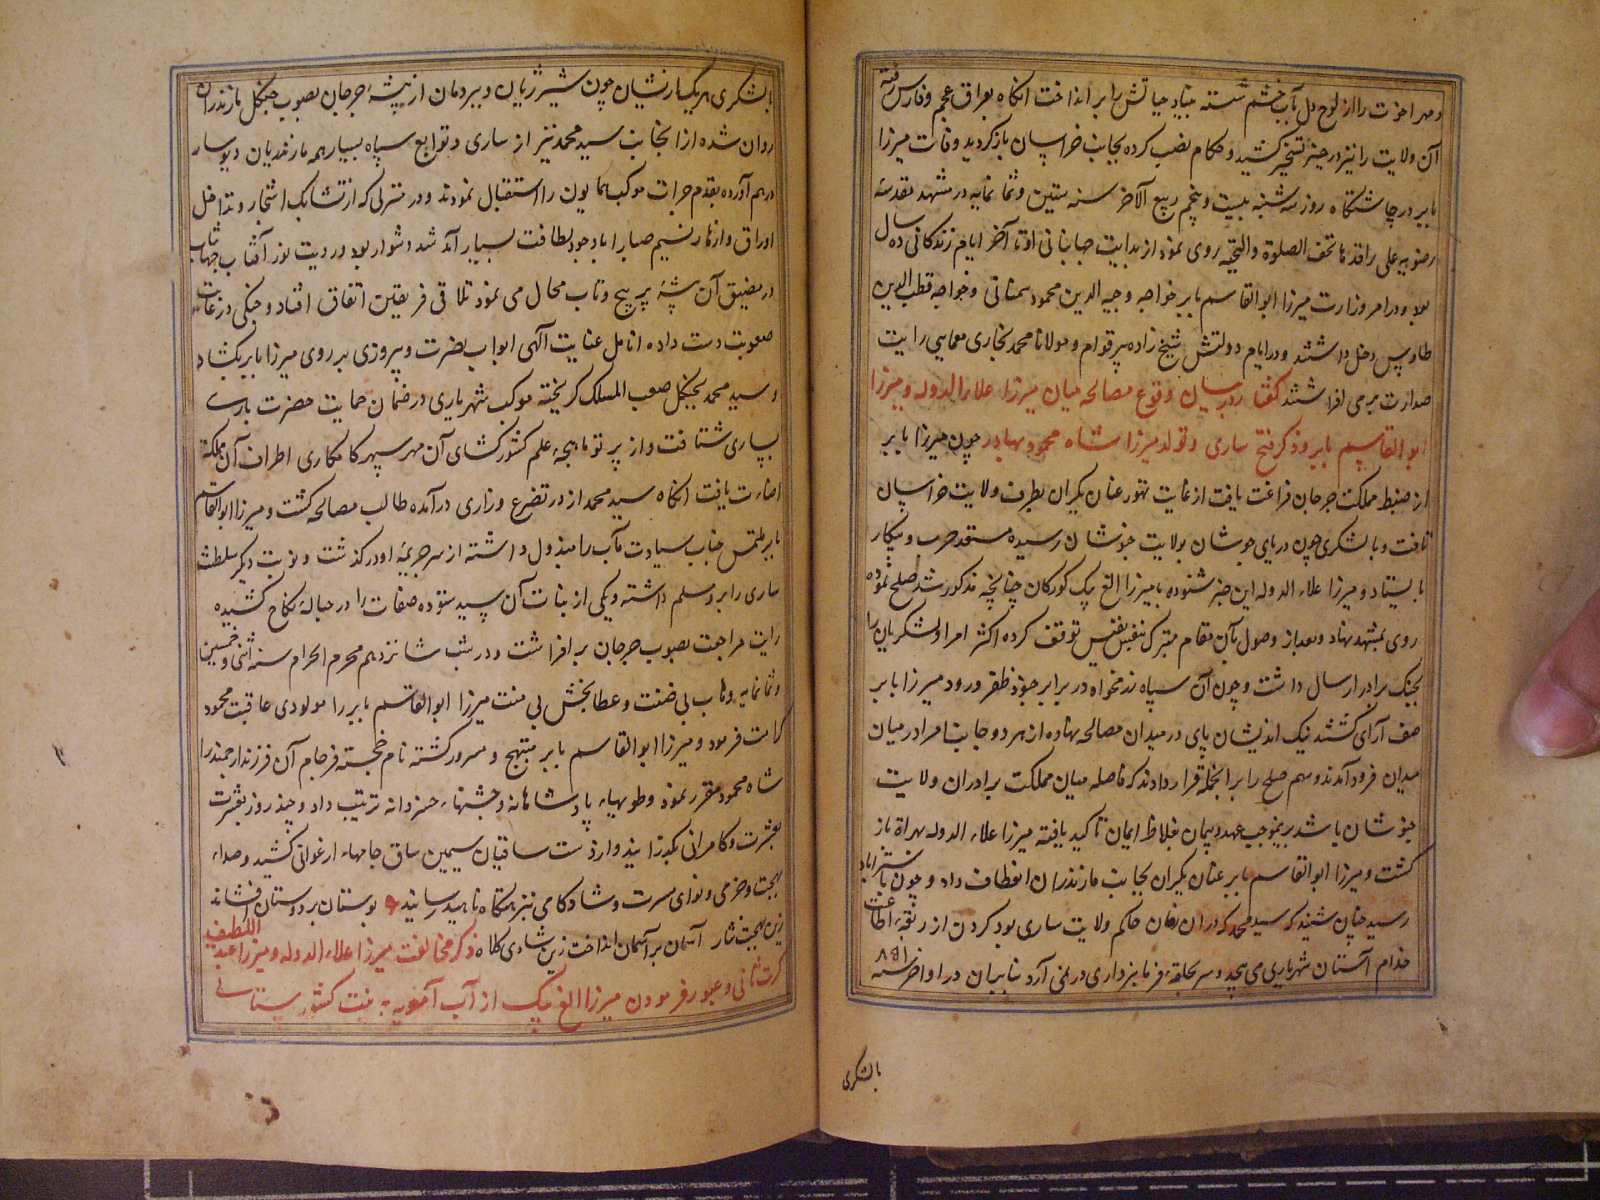 و مهر اخوت را از لوح دل بآب خشم شسته بنیاد حیاتش را بر انداخت آنکاه بعراق عجم و فارس رفته
آن ولایت را نیز در حیز تسخیر کشید و حکام نصب کرده بجانب خراسان بازکردید وفات میرزا
بابر در چاشتکاه روز سه شنبه بیست و پنجم ربیع الآخر سنه ستین و ثمانمایه در مشهد مقدسه
رضویه علی راقدها تحف الصلوة والتحیه روی نمود از بدایت جهانبانی او تا آخر ایام زندکانی ده سال
بود و در امر وزارت میرزا ابوالقاسم بابر خواجه وجیه الدین محمود سمنانی و خواجه قطب الدین
طاوس دخل داشتند و در ایام دولتش شیخ زاده پیر قوام و مولانا محمد بخاری معمایی رایت
صدارت می افراشتند کفتار در بیان وقوع مصالحه میان میرزا علاء الدوله و میرزا
ابوالقاسم بابر و ذکر فتح ساری و تولد میرزا شاه محمود بهادر چون میرزا بابر
از ضبط مملکت جرجان فراغت یافت از غایت تهور عنان یکران بطرف ولایت خراسان
تافت و با لشکری چون دریای جوشان بولایت خبوشان رسیده مستعد حرب و پیکار
بایستاد و میرزا علاء الدوله این خبر شنوده با میرزا الغ بیک کورکان چنانچه مذکور شد صلح نموده
روی بمشهد نهاد و بعد از وصول بآن مقام متبرک بنفس نفیس توقف کرده اکثر امرا و لشکریان را
بجنک برادر ارسال داشت و چون آن سپاه رزمخواه در برابر جنود ظفر ورود میرزا بابر
صف آرای کشتند نیک اندیشان پای در میدان مصالحه نهاده از هر دو جانب امرا در میان
میدان فرود آمدند و مهم صلح را بر آنجمله قرار دادند که فاصله میان مملکت برادران ولایت
خبوشان باشد بر بموجب عهد و پیمان بغلاظ ایمان تاکید یافته میرزا علاء الدوله بهراة باز
کشت و میرزا ابوالقاسم بابر عنان یکران بجانب مازندران انعطاف داد و چون باستراباد
رسید چنان شنید که سید محمد که در آن زمان حاکم ولایت ساری بود کردن از ربقه اطاعت
خدام آستان شهریاری می پیچد و سر بحلقه فرمانبرداری در نمی آرد بنابران در اواخر سنه ۸۵۱
بالشکری
بالشکری هر یک از نشان چون شیر ژیان و ببر دمان از بیشه جرجان بصوب جنکل مازندران
روان شده از آنجانب سید محمد نیز از ساری و توابع سپاه بسیار همه مازندریان دیوسار
درهم آورده بقدم جرات موکب همایون را استقبال نمودند و در منزلی که از تشابک اشجار و تداخل
اوراق و ازهار نسیم صبا را با وجود لطافت بسیار آمد شد دشوار بود و رویت نور آفتاب جهانتاب
در مضیق آن بیشه پر پیچ و تاب محال می نمود تلاقی فریقین اتفاق افتاد و جنکی در غایت
صعوبت دست داده انامل عنایت آلهی ابواب نصرت و پیروزی بر روی میرزا بابر بکشاد
و سید محمد بجنکل صعب المسلک کریخته موکب شهریاری در ضمان حمایت حضرت باری
بساری شتافت و از پرتو ماهچه علم کشورکشای آن مهر سپهر کامکاری اطراف آن مملکت
اضاءت یافت آنکاه سید محمد از در تضرع و زاری درآمده طالب مصالحه کشت و میرزا ابوالقاسم
بابر ملتمس جناب سیادت مآب را مبذول داشته از سر جریمه او در کذشت و نوبت دیکر سلطنت
ساری را بر او مسلم داشته و یکی از بنات آن سید ستوده صفات را در حباله نکاح کشیده
رایت مراجعت بصوب جرجان بر افراشت و در شب شانزدهم محرم الحرام سنه اثنی و خمسین
و ثمانمایه وهاب بی ضنت و عطا بخش بی منت میرزا ابوالقاسم بابر را مولودی عاقبت محمود
کرامت فرمود و میرزا ابوالقاسم بابر مبتهج و مسرور کشته نام خجسته فرجام آن فرزند ارجمند را
شاه محمود مقرر نمود و طویهاء پادشاهانه و جشنهاء خسروانه ترتیب داد و چند روز بعشرت
بعشرت و کامرانی بکذرانید و از دست ساقیان سیمین ساق جامهاء ارغوانی کشید و صداء
بهجت و خرمی و نوای مسرت و شادکامی بنزهتکاه ناهید رسانید بوستان بر دوستان فشاند
زین بهجت نثار آسمان بر آسمان انداخت زین شادی کلاه ذکر مخالفت میرزا علاء الدوله و میرزا عبد اللطیف
کرت ثانی و عبور فرمودن میرزا الغ بیک از آب آمویه به نیت کشور ستانی